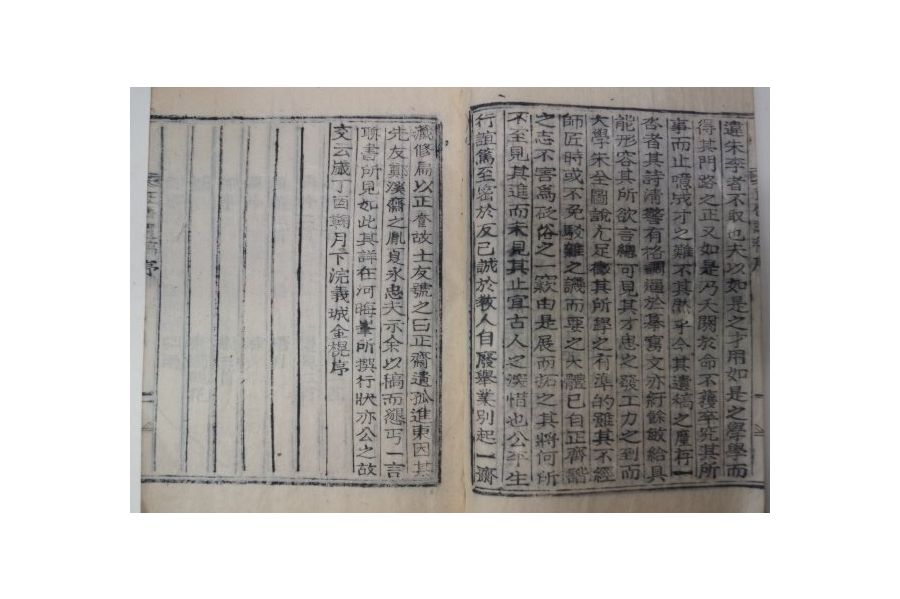 違朱李者不取也夫以如是之才用如是之學學而
得其門路之正又如是乃夭閼於命不獲卒究其所
事而止噫成才之難不其然乎今其遺稿之厪存一
沓者其詩淸警有格調過於摹寫文亦紆餘敏給具
能形容其所欲言總可見其才思之發工力之到而
大學朱全圖說尤足徵其所學之有準的雖其不經
師匠時或不免駁雜之譏而要之大體已自正齊踏
之志不害爲砭俗之一窾由是展而拓之其將何所
不至見其進而未見其止宜古人之深惜也公平生
行誼篤至密於友己誠於敎人自廢擧業別起一齋
藏修扁以正齋故士友號之曰正齋遺孤進東因其
先友鄭溪齋之胤夐永忠夫示余以稿而懇丐一言
聊書所見如此其詳在河晦峯所撰行狀亦公之故
交云歲丁酉朝月下浣義城金榥序